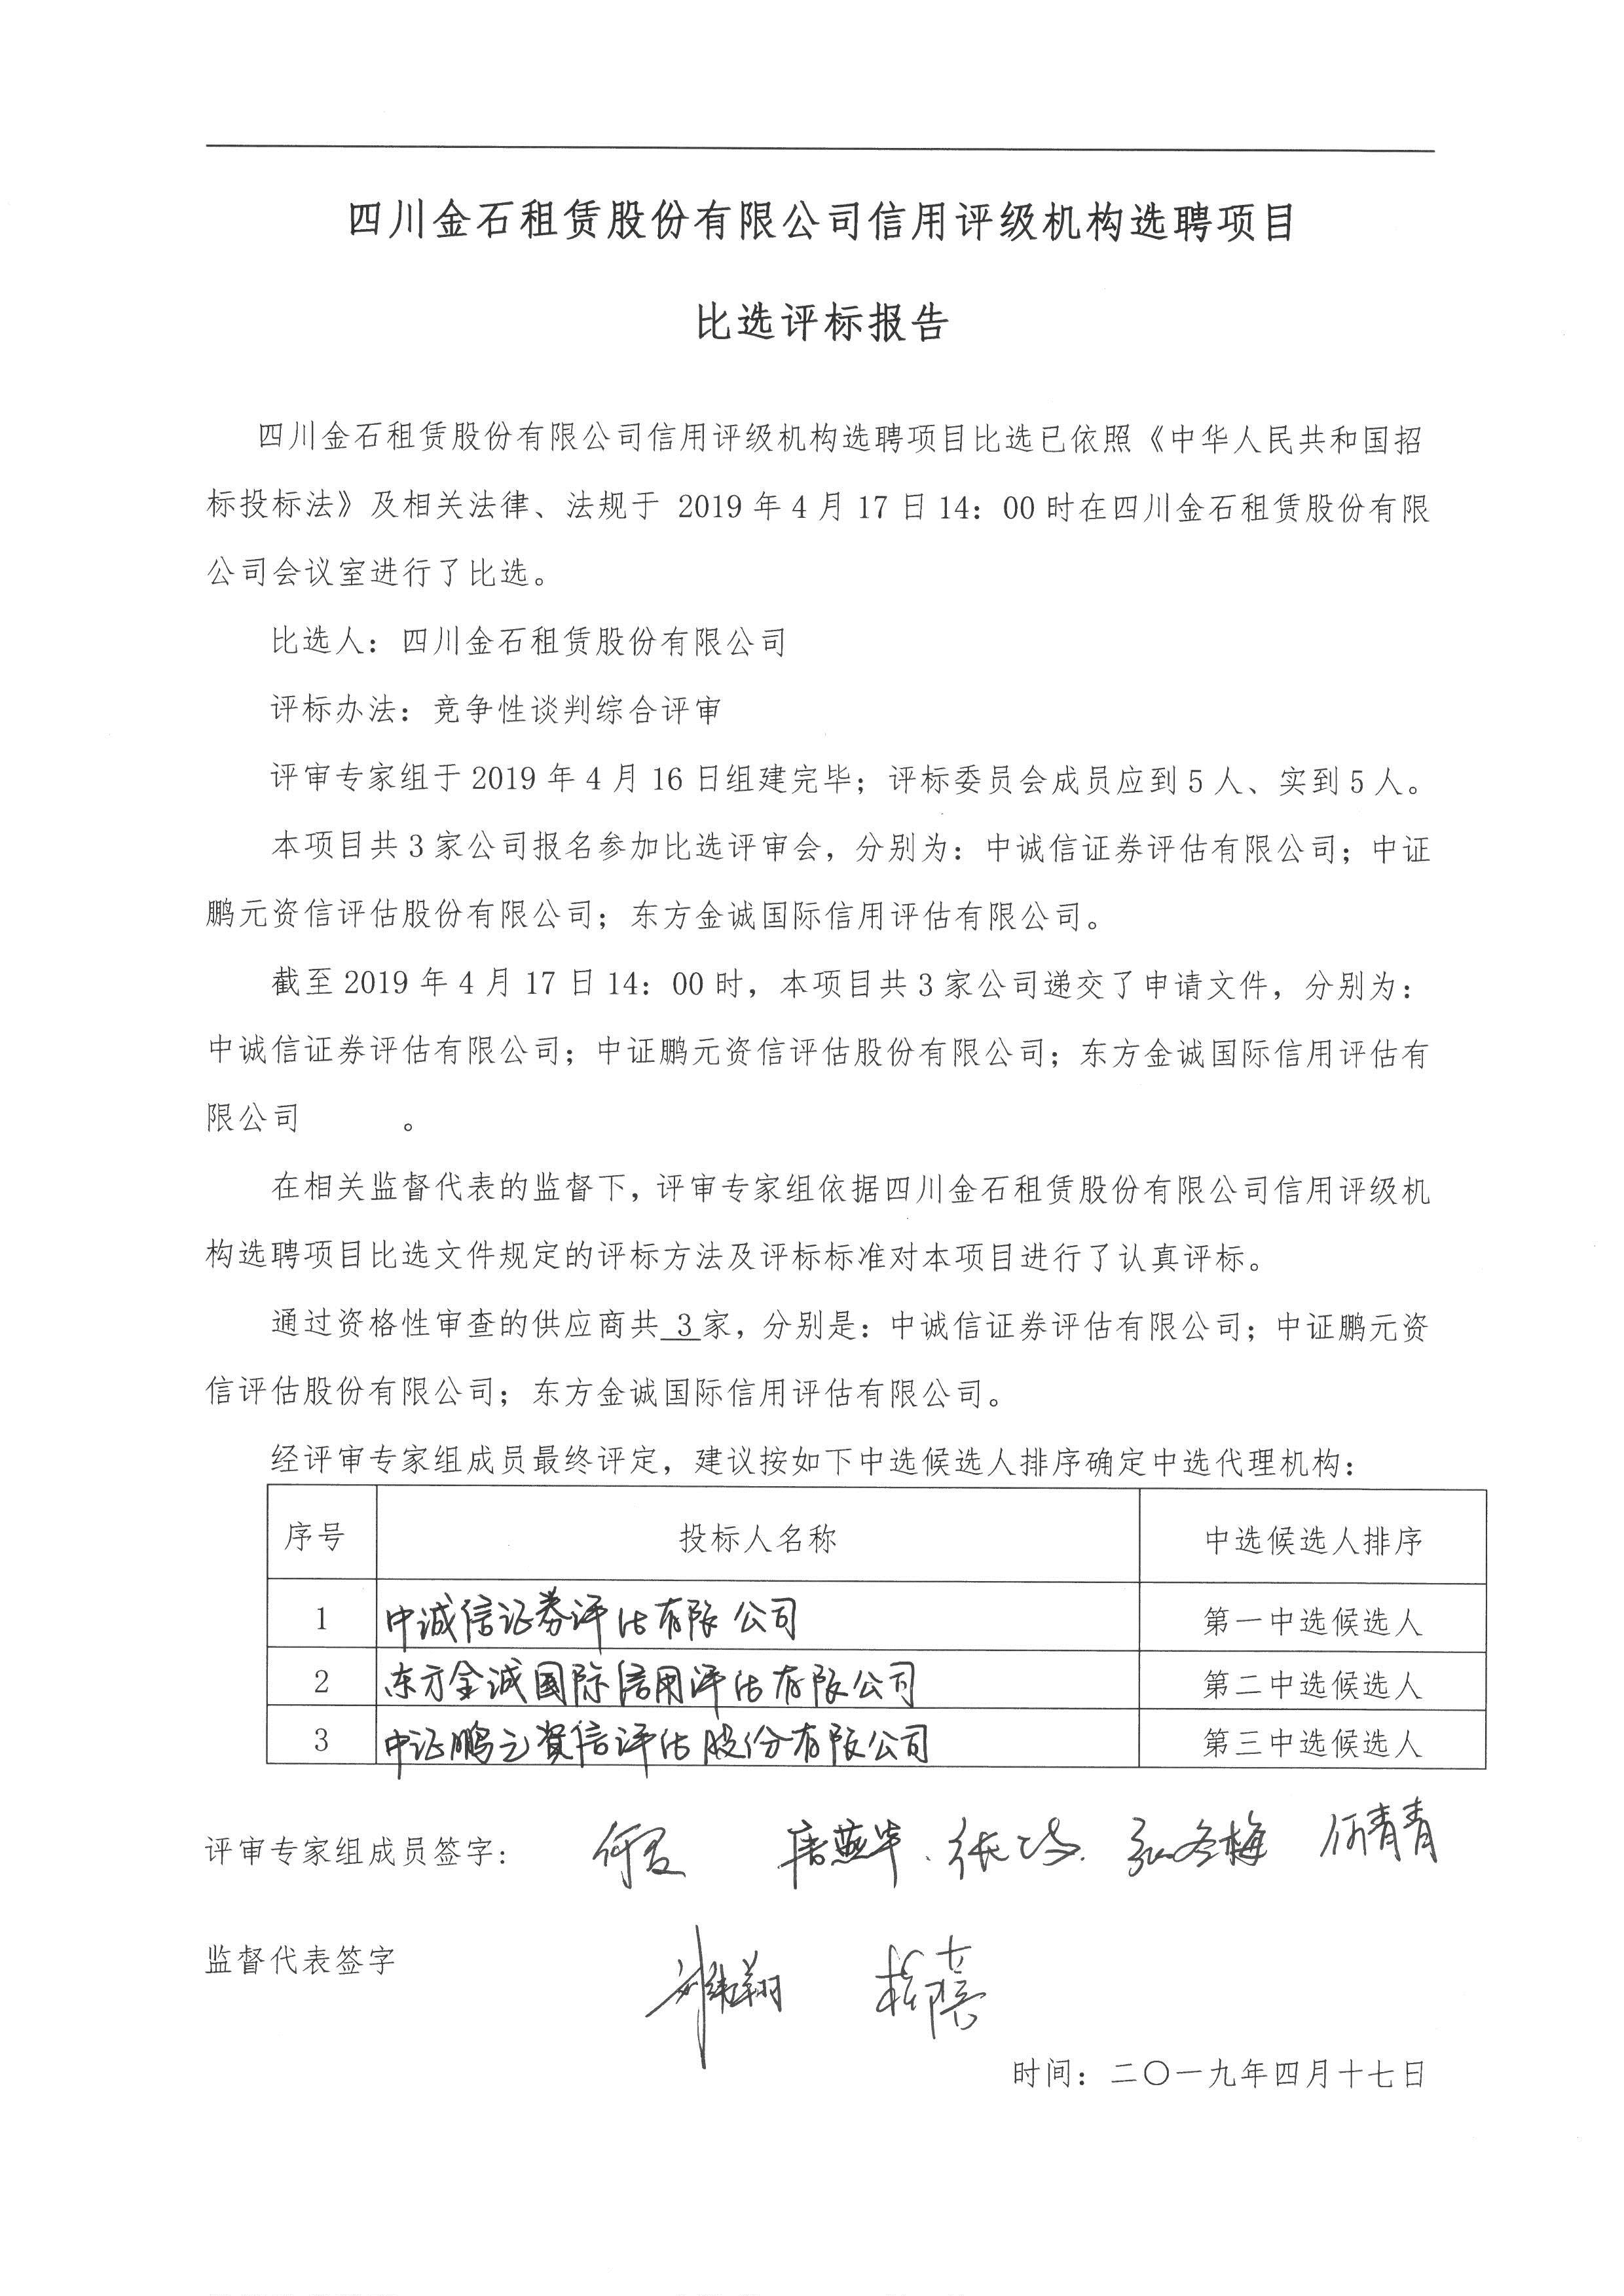 四川金石租赁股份有限公司信用评级机构选聘项目
比选评标报告
四川金石租赁股份有限公司信用评级机构选聘项目比选已依照《中华人民共和国招
标投标法》及相关法律、法规于 2019 年 4 月 17 日 14：00 时在四川金石租赁股份有限
公司会议室进行了比选。
比选人：四川金石租赁股份有限公司
评标办法：竞争性谈判综合评审
评审专家组于 2019 年 4 月 16 日组建完毕；评标委员会成员应到 5 人、实到 5 人。
本项目共 3 家公司报名参加比选评审会，分别为：中诚信证券评估有限公司；中证
鹏元资信评估股份有限公司；东方金诚国际信用评估有限公司。
截至 2019 年 4 月 17 日 14：00 时，本项目共 3 家公司递交了申请文件，分别为：
中诚信证券评估有限公司；中证鹏元资信评估股份有限公司；东方金诚国际信用评估有
限公司 。
在相关监督代表的监督下，评审专家组依据四川金石租赁股份有限公司信用评级机
构选聘项目比选文件规定的评标方法及评标标准对本项目进行了认真评标。
通过资格性审查的供应商共 3 家，分别是：中诚信证券评估有限公司；中证鹏元资
信评估股份有限公司；东方金诚国际信用评估有限公司。
经评审专家组成员最终评定，建议按如下中选候选人排序确定中选代理机构：
序号 投标人名称 中选候选人排序
1 中诚信证券评估有限公司 第一中选候选人
2 东方金诚国际信用评估有限公司 第二中选候选人
3 中证鹏元资信评估股份有限公司 第三中选候选人
评审专家组成员签字： 唐燕华 何青青
监督代表签字
时间：二〇一九年四月十七日